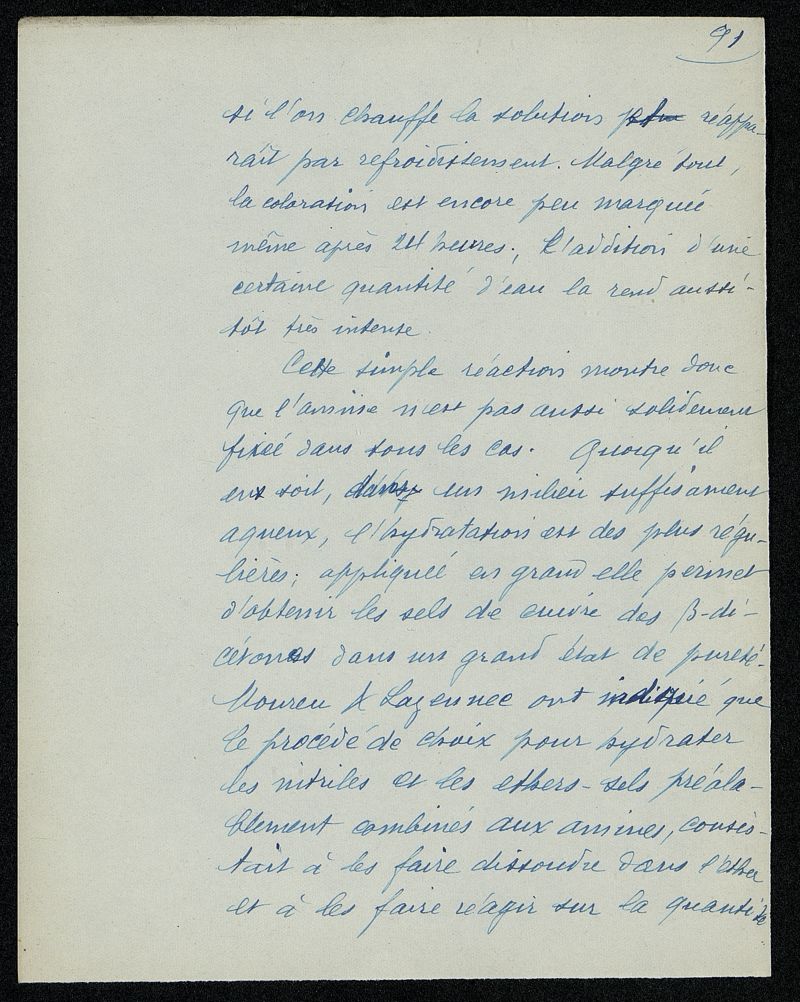 91
si l'on chauffe la solution réappa-
raît par refroidissement. Malgré tout,
la coloration est encore peu marquée
même après 24 heures; l'addition d'une
certaine quantité d'eau la rend aussi-
tôt très intense.
Cette simple réaction montre donc
que l'amine n'est pas aussi solidement
fixée dans tous les cas. Quoiqu'il
en soit, dans un milieu suffisament
aqueux, l'hydratation est des plus régu-
lières; appliquée en grand elle permet
d'obtenir les sels de cuivre des β-di-
cétones dans un grand état de pureté.
Moureu & Lazennec ont indiqué que
le procédé de choix pour hydrater
les nitriles et les ethers-sels préala-
blement combinés aux amines, consis-
tait à les faire dissoudre dans l'ether
et à les faire réagir sur la quantité